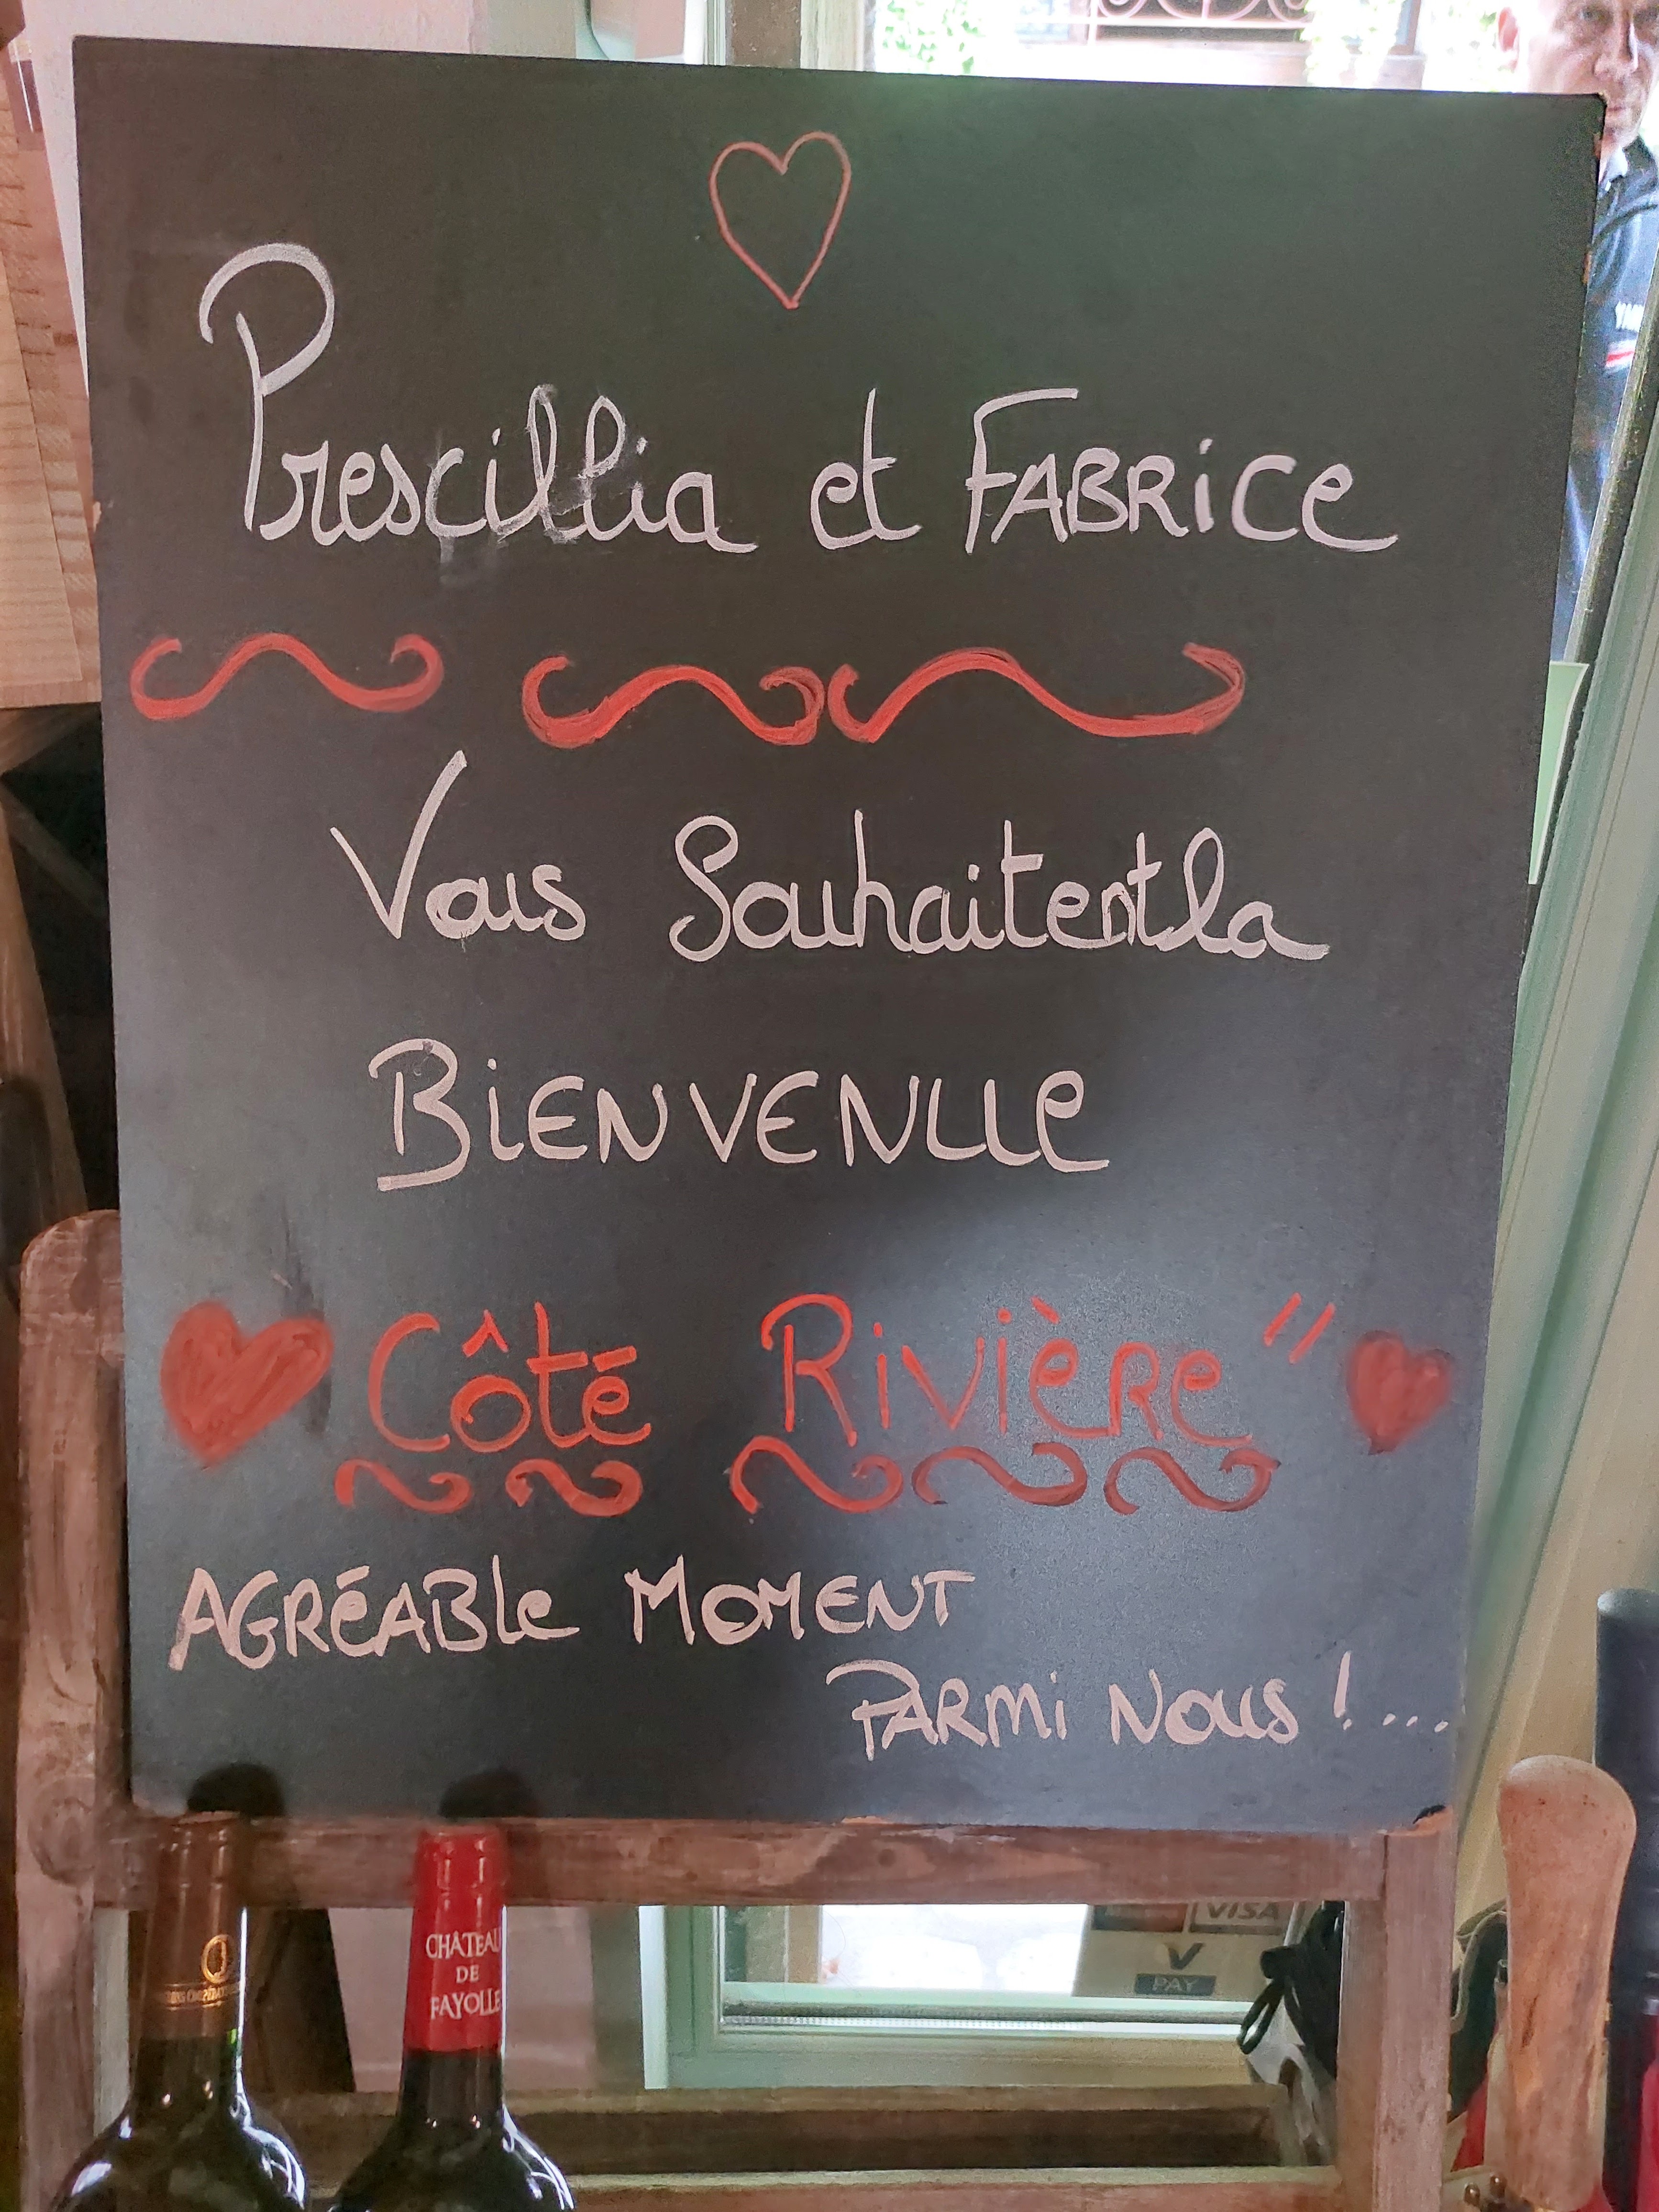 Prescillia et FABRiCe
Vous Souhaitent la
BiENVENUe
Côté Rivière "
AGRéABle MOMENT
PARMi NOUS ! ...
CHÂTEAU
DE
FAYOLLE
VISA
V
PAY